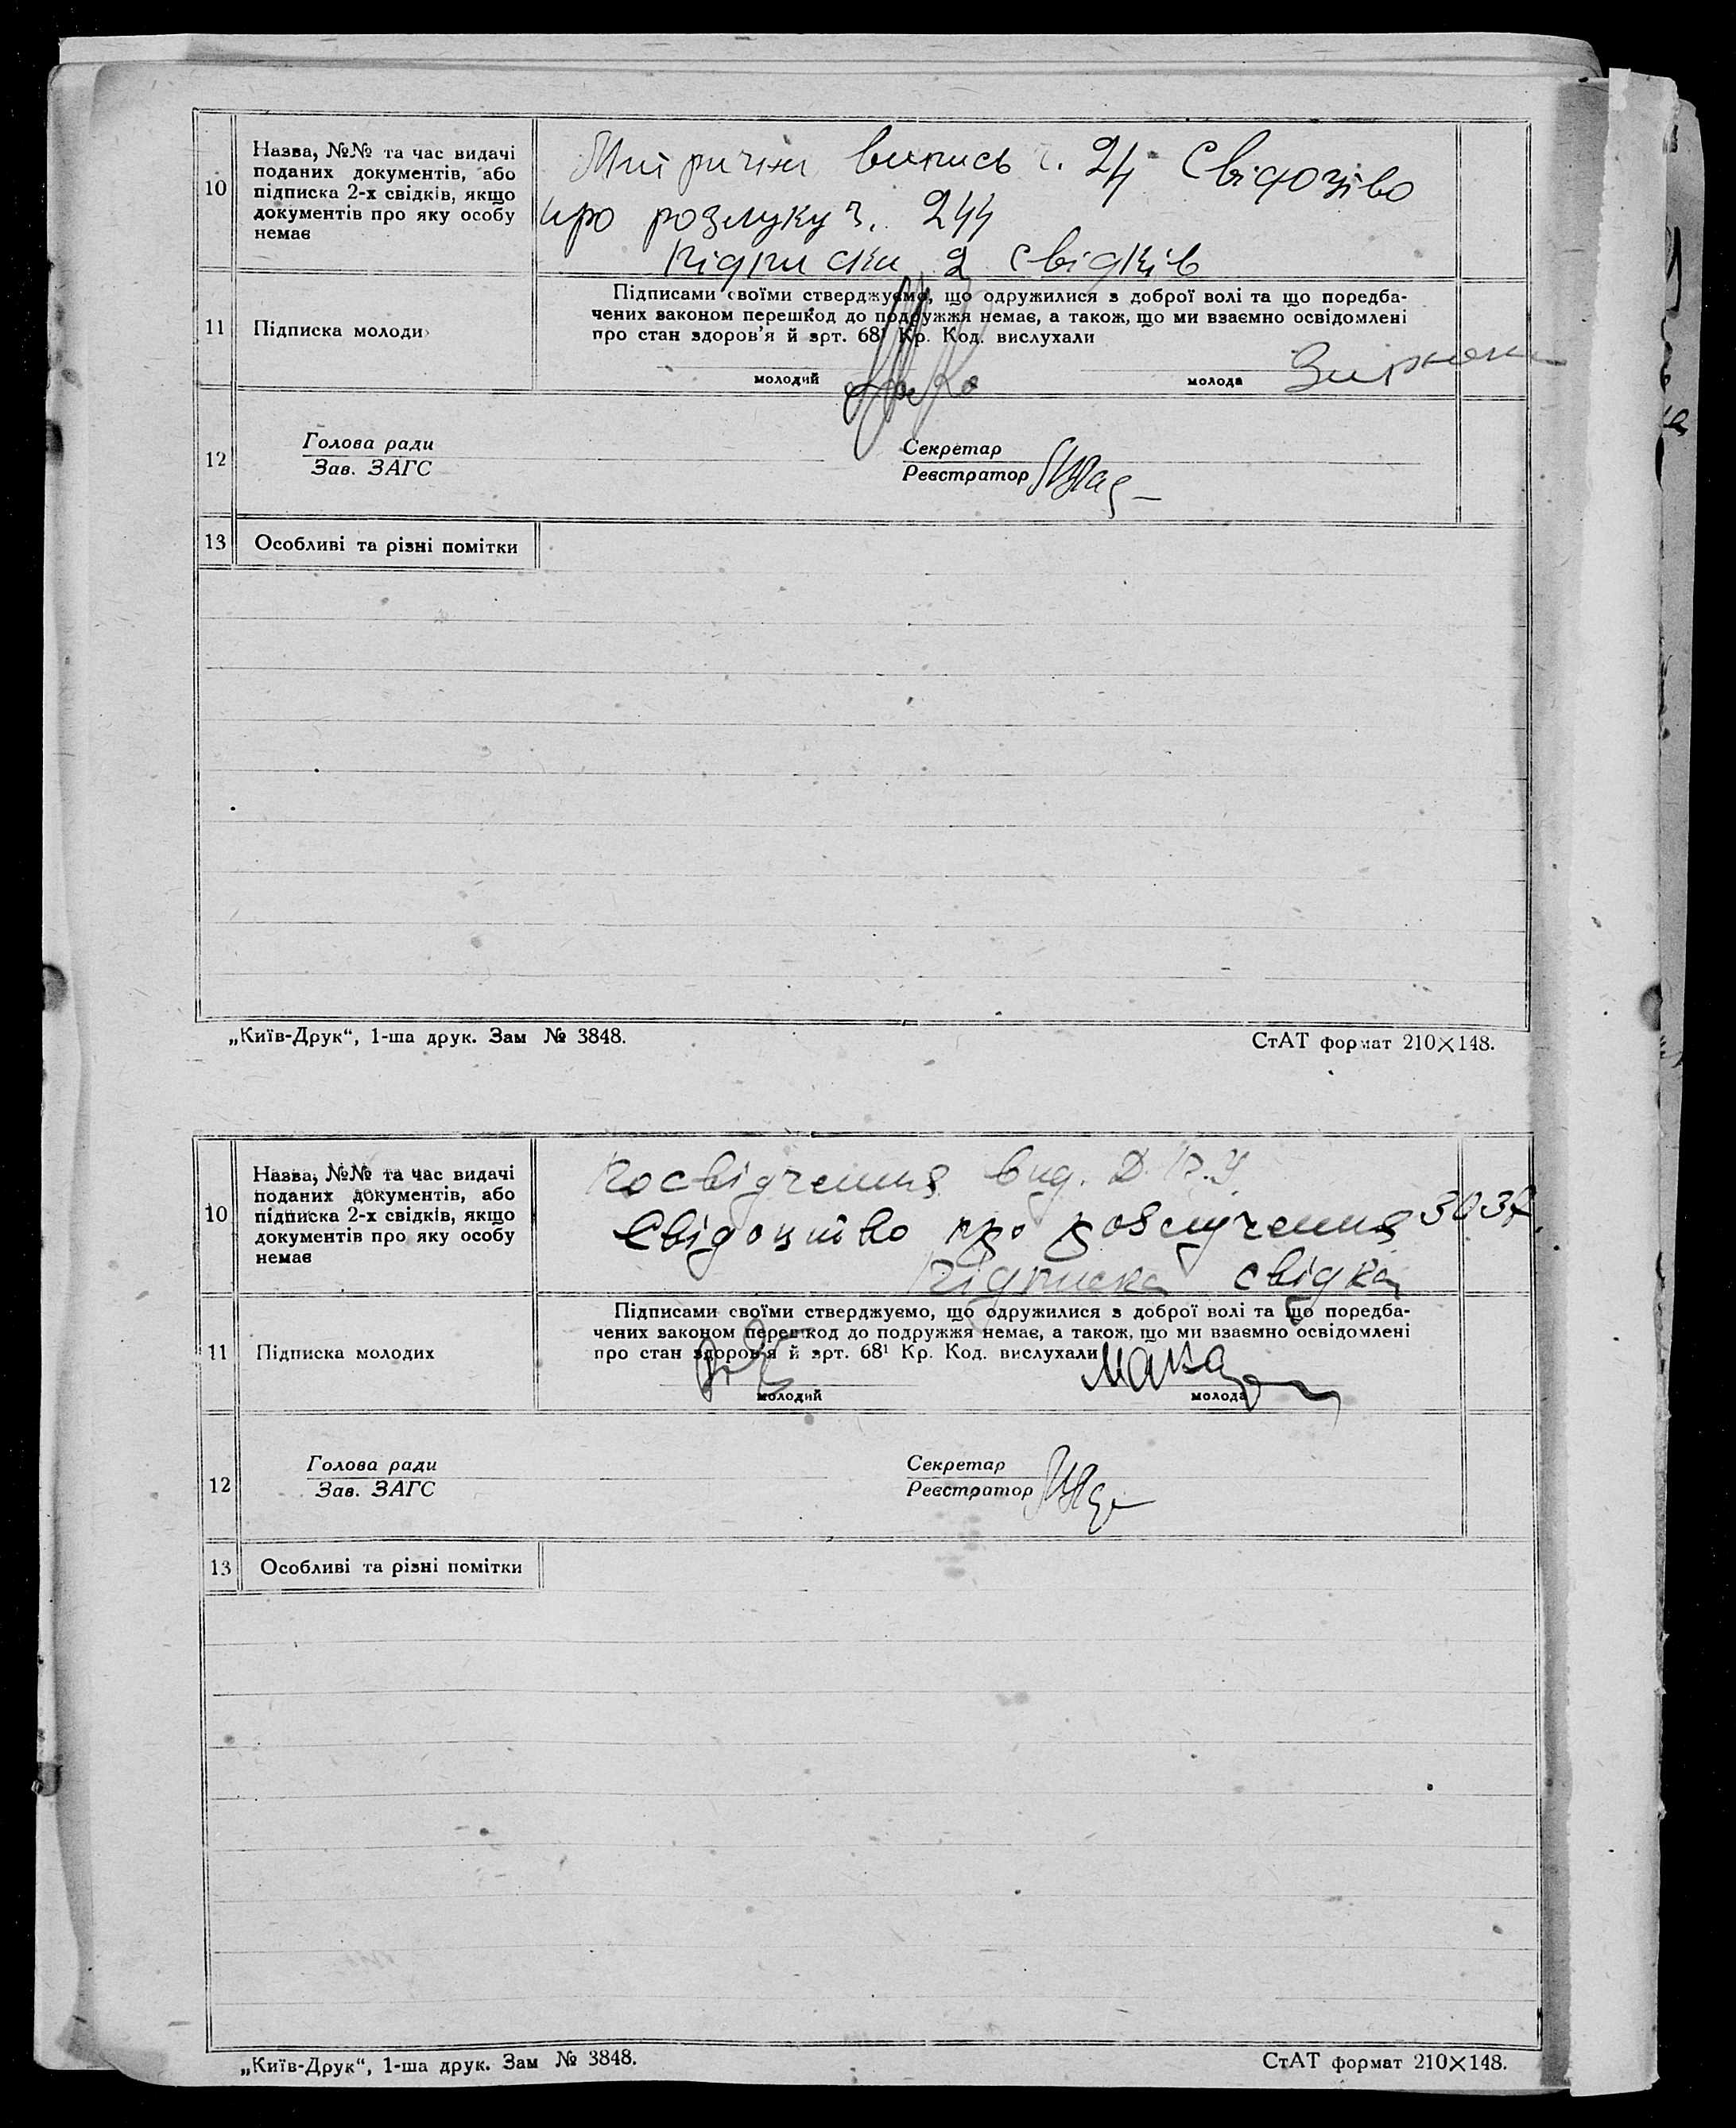 10
Назва, №№ та час видачі
поданих документів, або
підписка 2-х свідків, якщо
документів про яку особу
немає
випись ч. 24 Свідозтво
про розлуку ч. 244
Підписки 2 свідків
11
Підписка молоди
Підписами своїми стверджуємо, що одружилися з доброї волі та що поредба-
чених законом перешкод до подружжя немає, а також, що ми взаємно освідомлені
про стан здоров'я й арт. 68¹ Кр. Код. вислухали
молодий
молода
12
Голова ради
Зав. ЗАГС
Секретар
Реєстратор
13
Особливі та різні помітки
„Київ-Друк“, 1-ша друк. Зам № 3848.
СтАТ формат 210×148.
10
Назва, №№ та час видачі
поданих документів, або
підписка 2-х свідків, якщо
документів про яку особу
немає
Посвідчення вид. Д.П.У.
Свідоцтво про розлучення
Підписка свідка
11
Підписка молодих
Підписами своїми стверджуємо, що одружилися з доброї волі та що поредба-
чених законом перешкод до подружжя немає, а також, що ми взаємно освідомлені
про стан здоров'я й арт. 68¹ Кр. Код. вислухали
молодий
молода
12
Голова ради
Зав. ЗАГС
Секретар
Реєстратор
13
Особливі та різні помітки
„Київ-Друк“, 1-ша друк. Зам № 3848.
СтАТ формат 210×148.